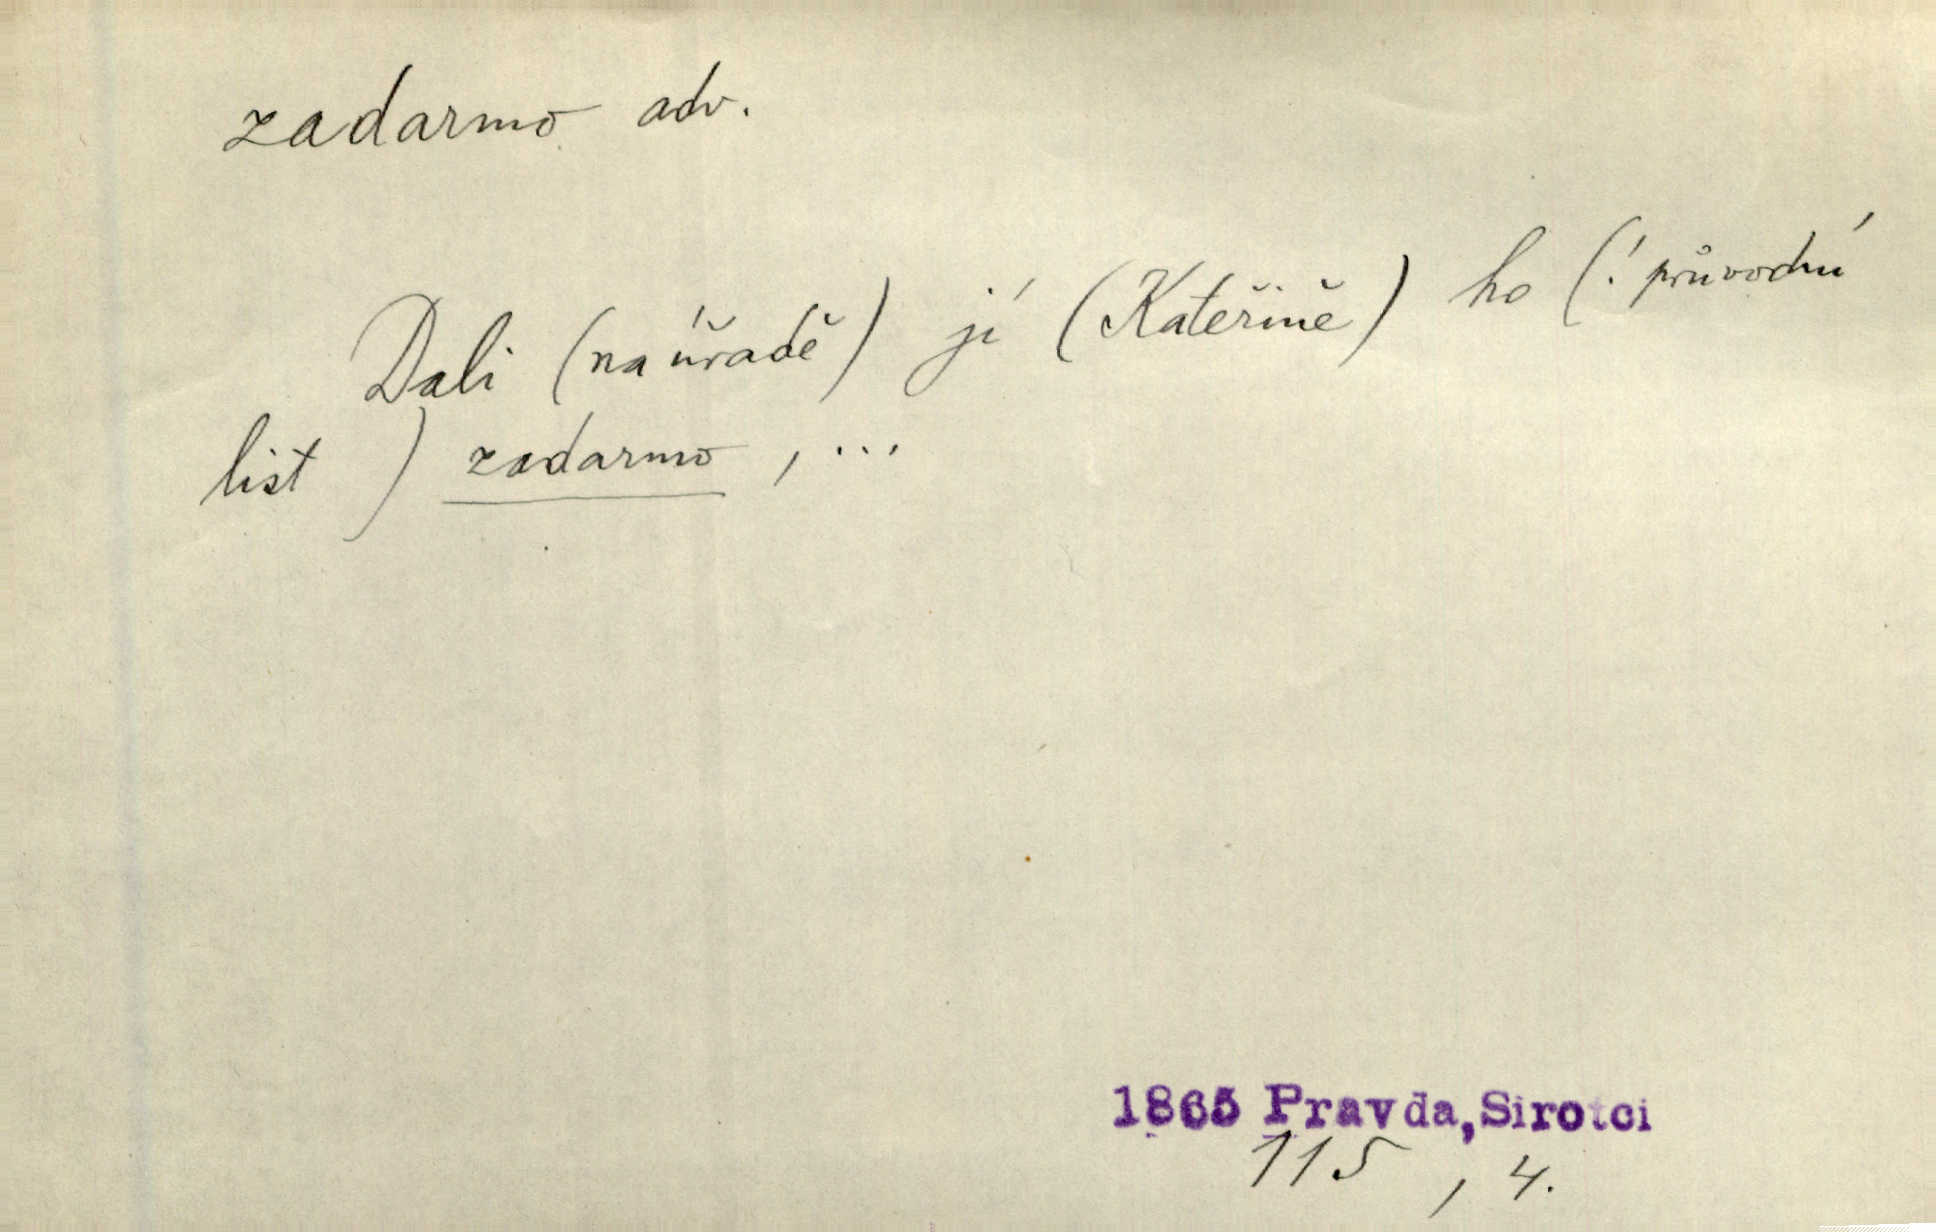 zadarmo adv.
Dali (na úřadě) jí (Kateřině) ho (! průvodní
list ) zadarmo , ...
1865 Pravda, Sirotci
115 , 4.